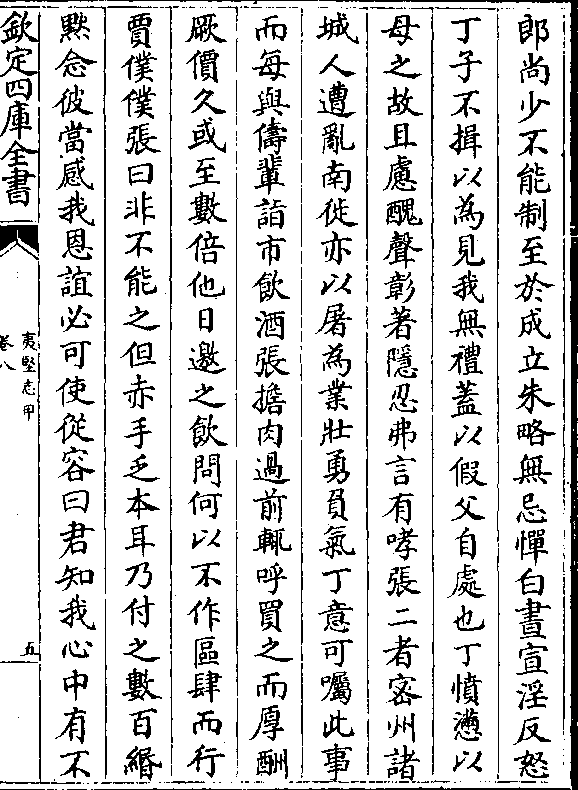 郎尚少不能制至於成立朱略無忌憚白晝宣淫反怒
丁子不揖以為見我無禮蓋以假父自處也丁憤懣以
母之故且慮醜聲彰著隱忍弗言有哮張二者密州諸
城人遭亂南徙亦以屠為業壯勇負氣丁意可囑此事
而每與儔輩詣市飲酒張擔肉過前輒呼買之而厚酬
厥價久或至數倍他日邀之飲問何以不作區肆而行
賈僕僕張曰非不能之但赤手乏本耳乃付之數百緡
黙念彼當感我恩誼必可使從容曰君知我心中有不
欽定四庫全書
夷堅志甲
卷八
五